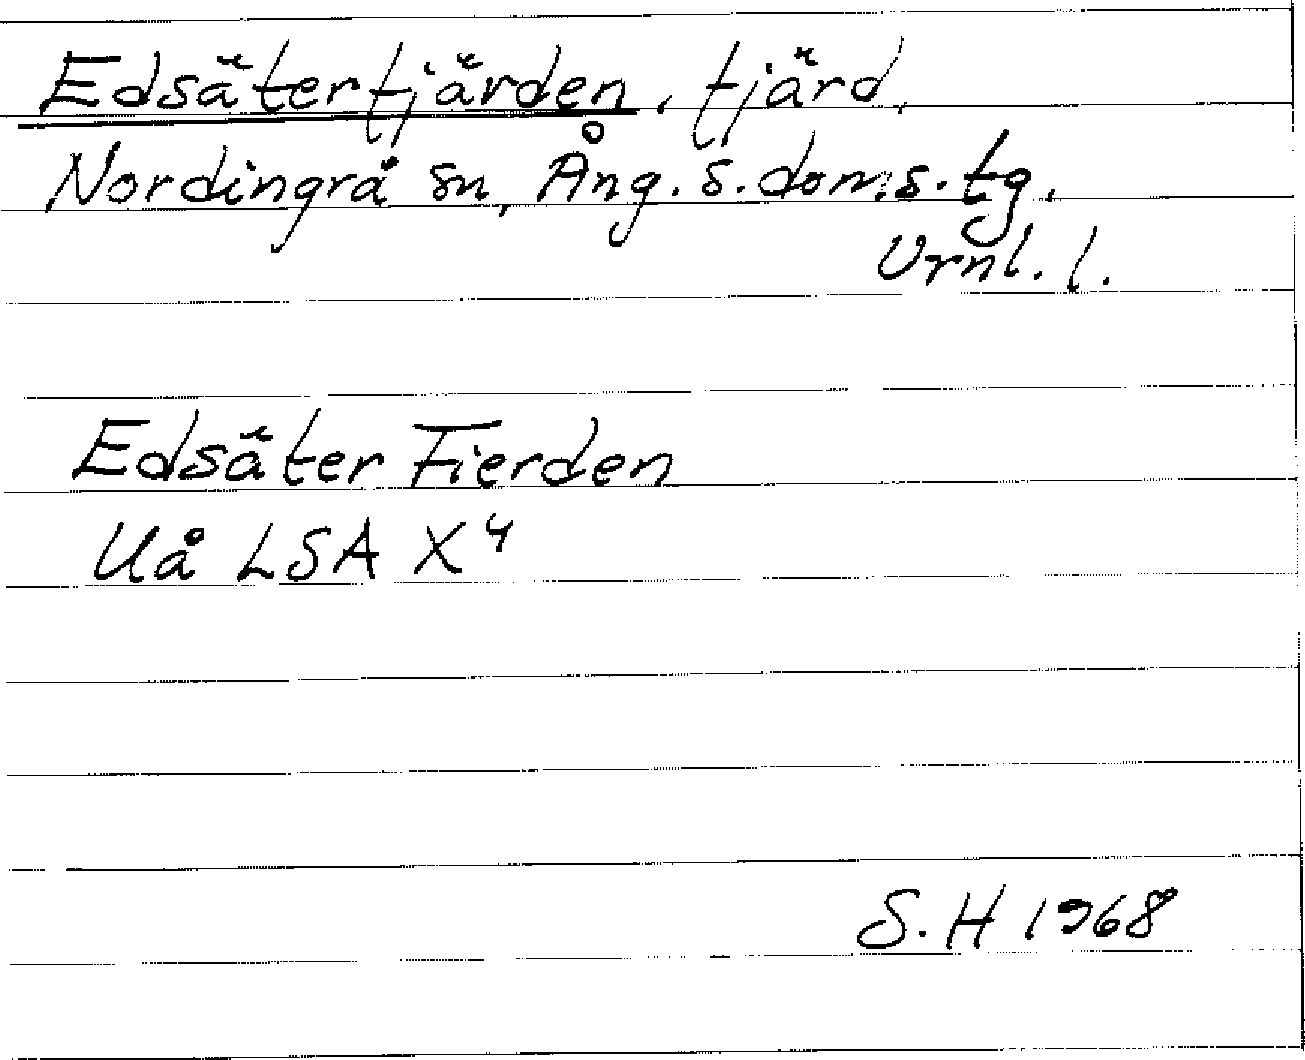 Edsäterfjärden, fjärd,
Nordingrå sn, Ång. s. doms. tg.
Vrnl. l.
Edsäter Fierden
Uå LSA X⁴
S. H 1968